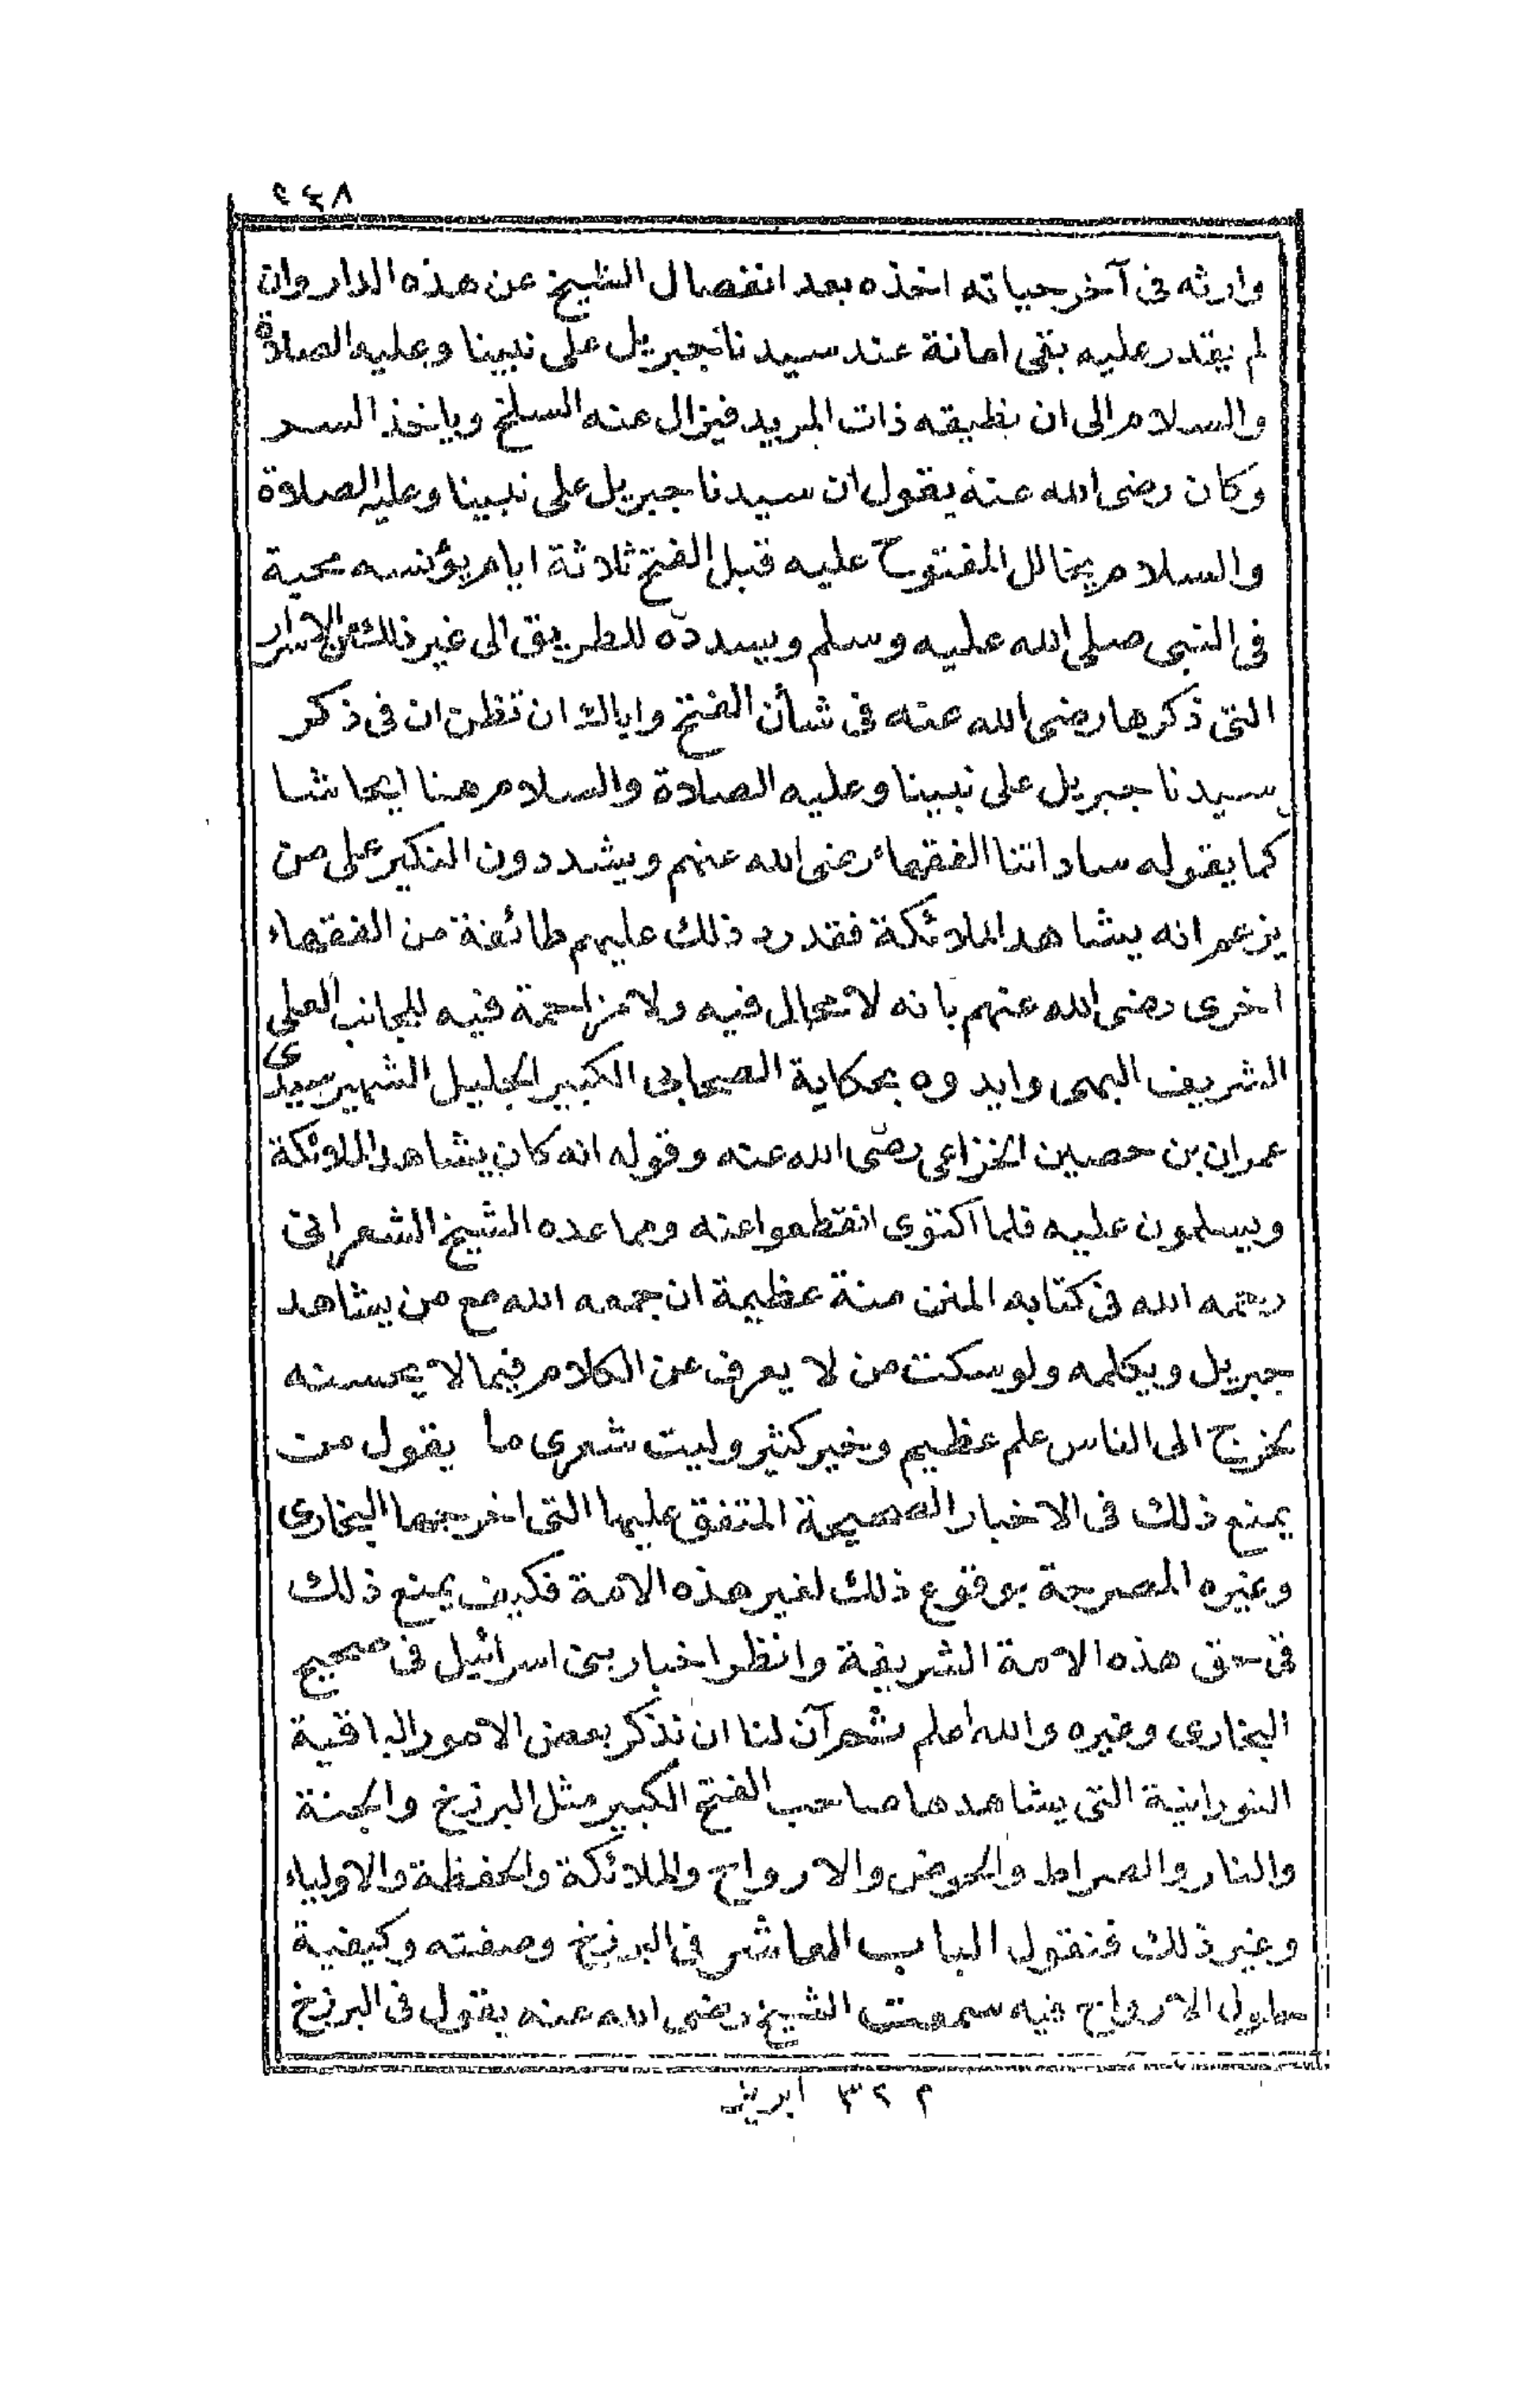 ٢٤٨
وارثه فى آخر حياته اخذه بعد انفصال الشيخ عن هذه الدار وان
لم يقدر عليه بقى امانة عند سيدنا جبريل على نبينا وعليه الصلاة
والسلام الى ان يطيقه ذات المريد فيزال عنه السلخ وياخذ السر
وكان رضى الله عنه يقول ان سيدنا جبريل على نبينا وعليه الصلاة
والسلام يخالل المفتوح عليه قبل الفتح ثلاثة ايام يؤنسه محبة
فى النبى صلى الله عليه وسلم ويسدده للطريق الى غير ذلك من الاسرار
التى ذكرها رضى الله عنه فى شأن الفتح واياك ان تظن ان فى ذكر
سيدنا جبريل على نبينا وعليه الصلاة والسلام هنا ايحاشا
كما يقوله ساداتنا الفقهاء رضى الله عنهم ويشددون النكير على من
يزعم انه يشاهد الملائكة فقد رد ذلك عليهم طائفة من الفقهاء
اخرى رضى الله عنهم بانه لا محال فيه ولا مزاحمة فيه للجانب العلى
الشريف البهى وايدوه بحكاية الصحابى الكبير الجليل الشهير سيدى
عمران بن حصين الخزاعى رضى الله عنه وقوله انه كان يشاهد الملائكة
ويسلمون عليه فلما اكتوى انقطعوا عنه ومما عده الشيخ الشعرانى
رحمه الله فى كتابه المنن منة عظيمة ان جمعه الله مع من يشاهد
جبريل ويكلمه ولو سكت من لا يعرف عن الكلام فيما لا يحسنه
لخرج الى الناس علم عظيم وخير كثير وليت شعرى ما يقول من
يمنع ذلك فى الاخبار الصحيحة المتفق عليها التى اخرجها البخارى
وغيره المصرحة بوقوع ذلك لغير هذه الامة فكيف يمنع ذلك
فى حق هذه الامة الشريفة وانظر اخبار بنى اسرائيل فى صحيح
البخارى وغيره والله اعلم ثم آن لنا ان نذكر بعض الامور الباقية
النورانية التى يشاهدها صاحب الفتح الكبير مثل البرزخ والجنة
والنار والصراط والحوض والارواح والملائكة والحفظة والاولياء
وغير ذلك فنقول الباب العاشر فى البرزخ وصفته وكيفية
حلول الارواح فيه سمعت الشيخ رضى الله عنه يقول فى البرزخ
م ٣٢ ابريز